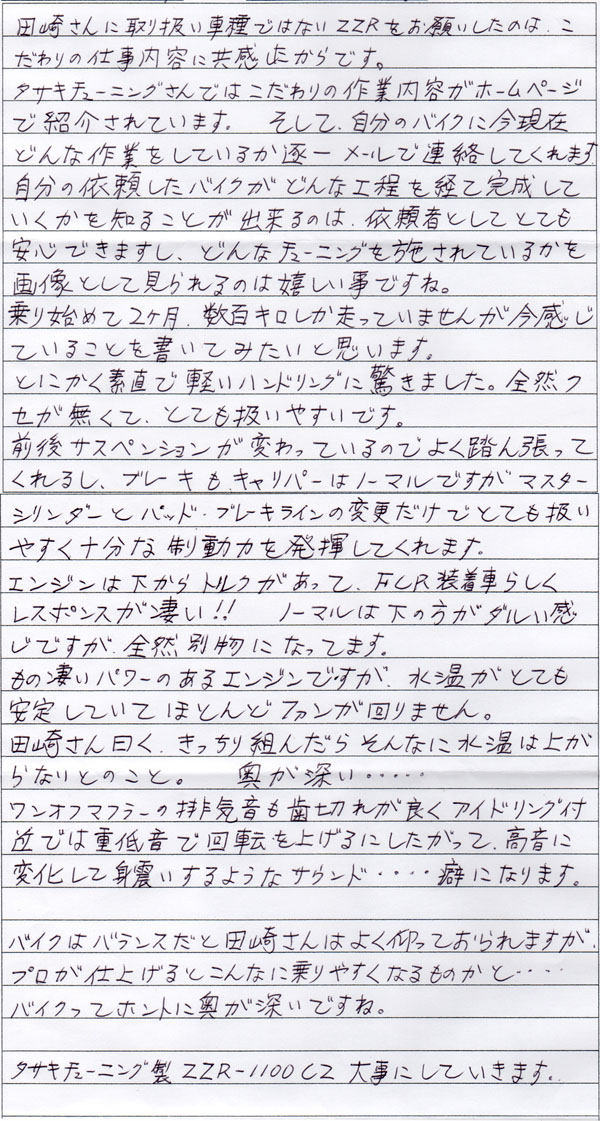 田崎さんに取り扱い車種ではないZZRをお願いしたのは、こ
だわりの仕事内容に共感したからです。
タサキチューニングさんではこだわりの作業内容がホームページ
で紹介されています。 そして、自分のバイクに今現在
どんな作業をしているか逐一メールで連絡してくれます
自分の依頼したバイクがどんな工程を経て完成して
いくかを知ることが出来るのは、依頼者としてとても
安心できますし、どんなチューニングを施されているかを
画像として見られるのは嬉しい事ですね。
乗り始めて2ヶ月、数百キロしか走っていませんが今感じ
ていることを書いてみたいと思います。
とにかく素直で軽いハンドリングに驚きました。全然ク
セが無くて、とても扱いやすいです。
前後サスペンションが変わっているのでよく踏ん張って
くれるし、ブレーキも、キャリパーはノーマルですがマスター
シリンダーとパッド・ブレーキラインの変更だけでとても扱い
やすく十分な制動力を発揮してくれます。
エンジンは下からトルクがあって、FCR装着車らしく
レスポンスが凄い!! ノーマルは下の方がダルい感
じですが、全然別物になってます。
もの凄いパワーのあるエンジンですが、水温がとても
安定していてほとんどファンが回りません。
田崎さん曰く、きっちり組んだらそんなに水温は上が
らないとのこと。 奥が深い・・・・・
ワンオフマフラーの排気音も歯切れが良くアイドリング付
近では重低音で回転を上げるにしたがって、高音に
変化して身震いするようなサウンド・・・・癖になります。
バイクはバランスだと田崎さんはよく仰っておられますが、
プロが仕上げるとこんなに乗りやすくなるものかと・・・・
バイクってホントに奥が深いですね。
タサキチューニング製ZZR-1100C2 大事にしていきます。